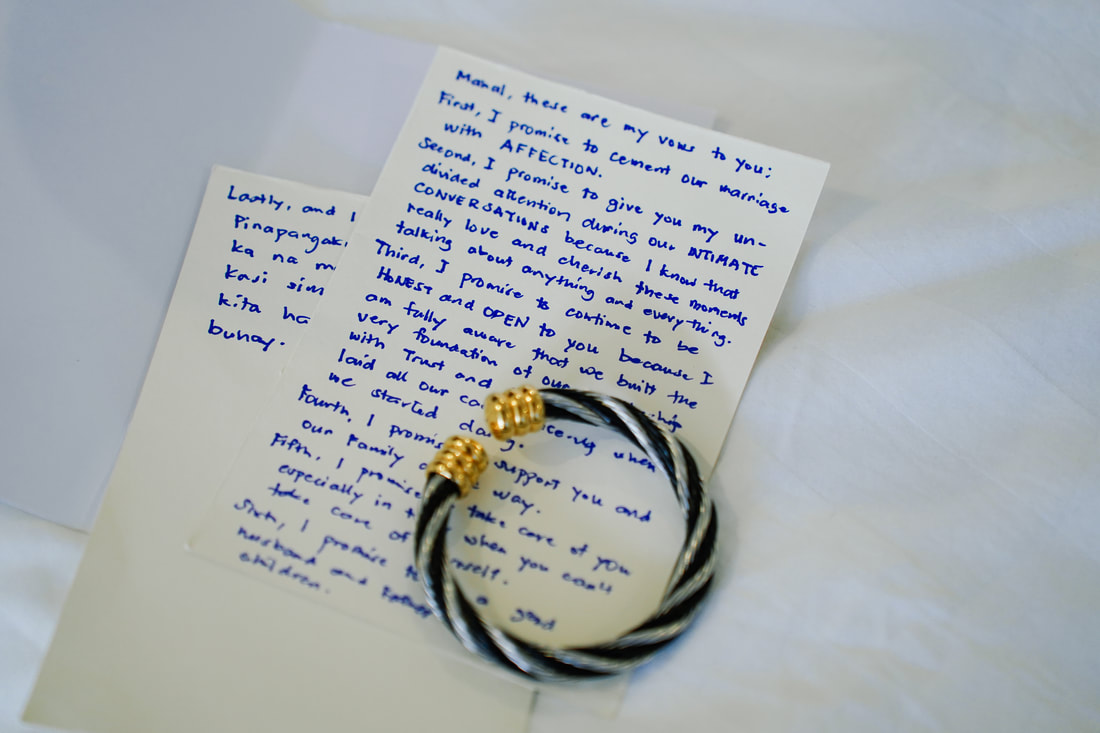 Mahal, these are my vows to you:
First, I promise to cement our marriage
with AFFECTION.
Second, I promise to give you my un-
divided attention during our INTIMATE
CONVERSATIONS because I know that
really love and cherish these moments
talking about anything and everything.
Third, I promise to continue to be
HONEST and OPEN to you because I
am fully aware that we built the
very foundation of our
with Trust and
laid all our when
we started
Fourth, I support you and
our Family way.
Fifth, I promise take care of you
especially in when you can't
take care of
Sixth, I promise a good
husband and
children.
Lastly, and I
Pinapangak
ka na m
Kasi sim
kita ha
buhay.